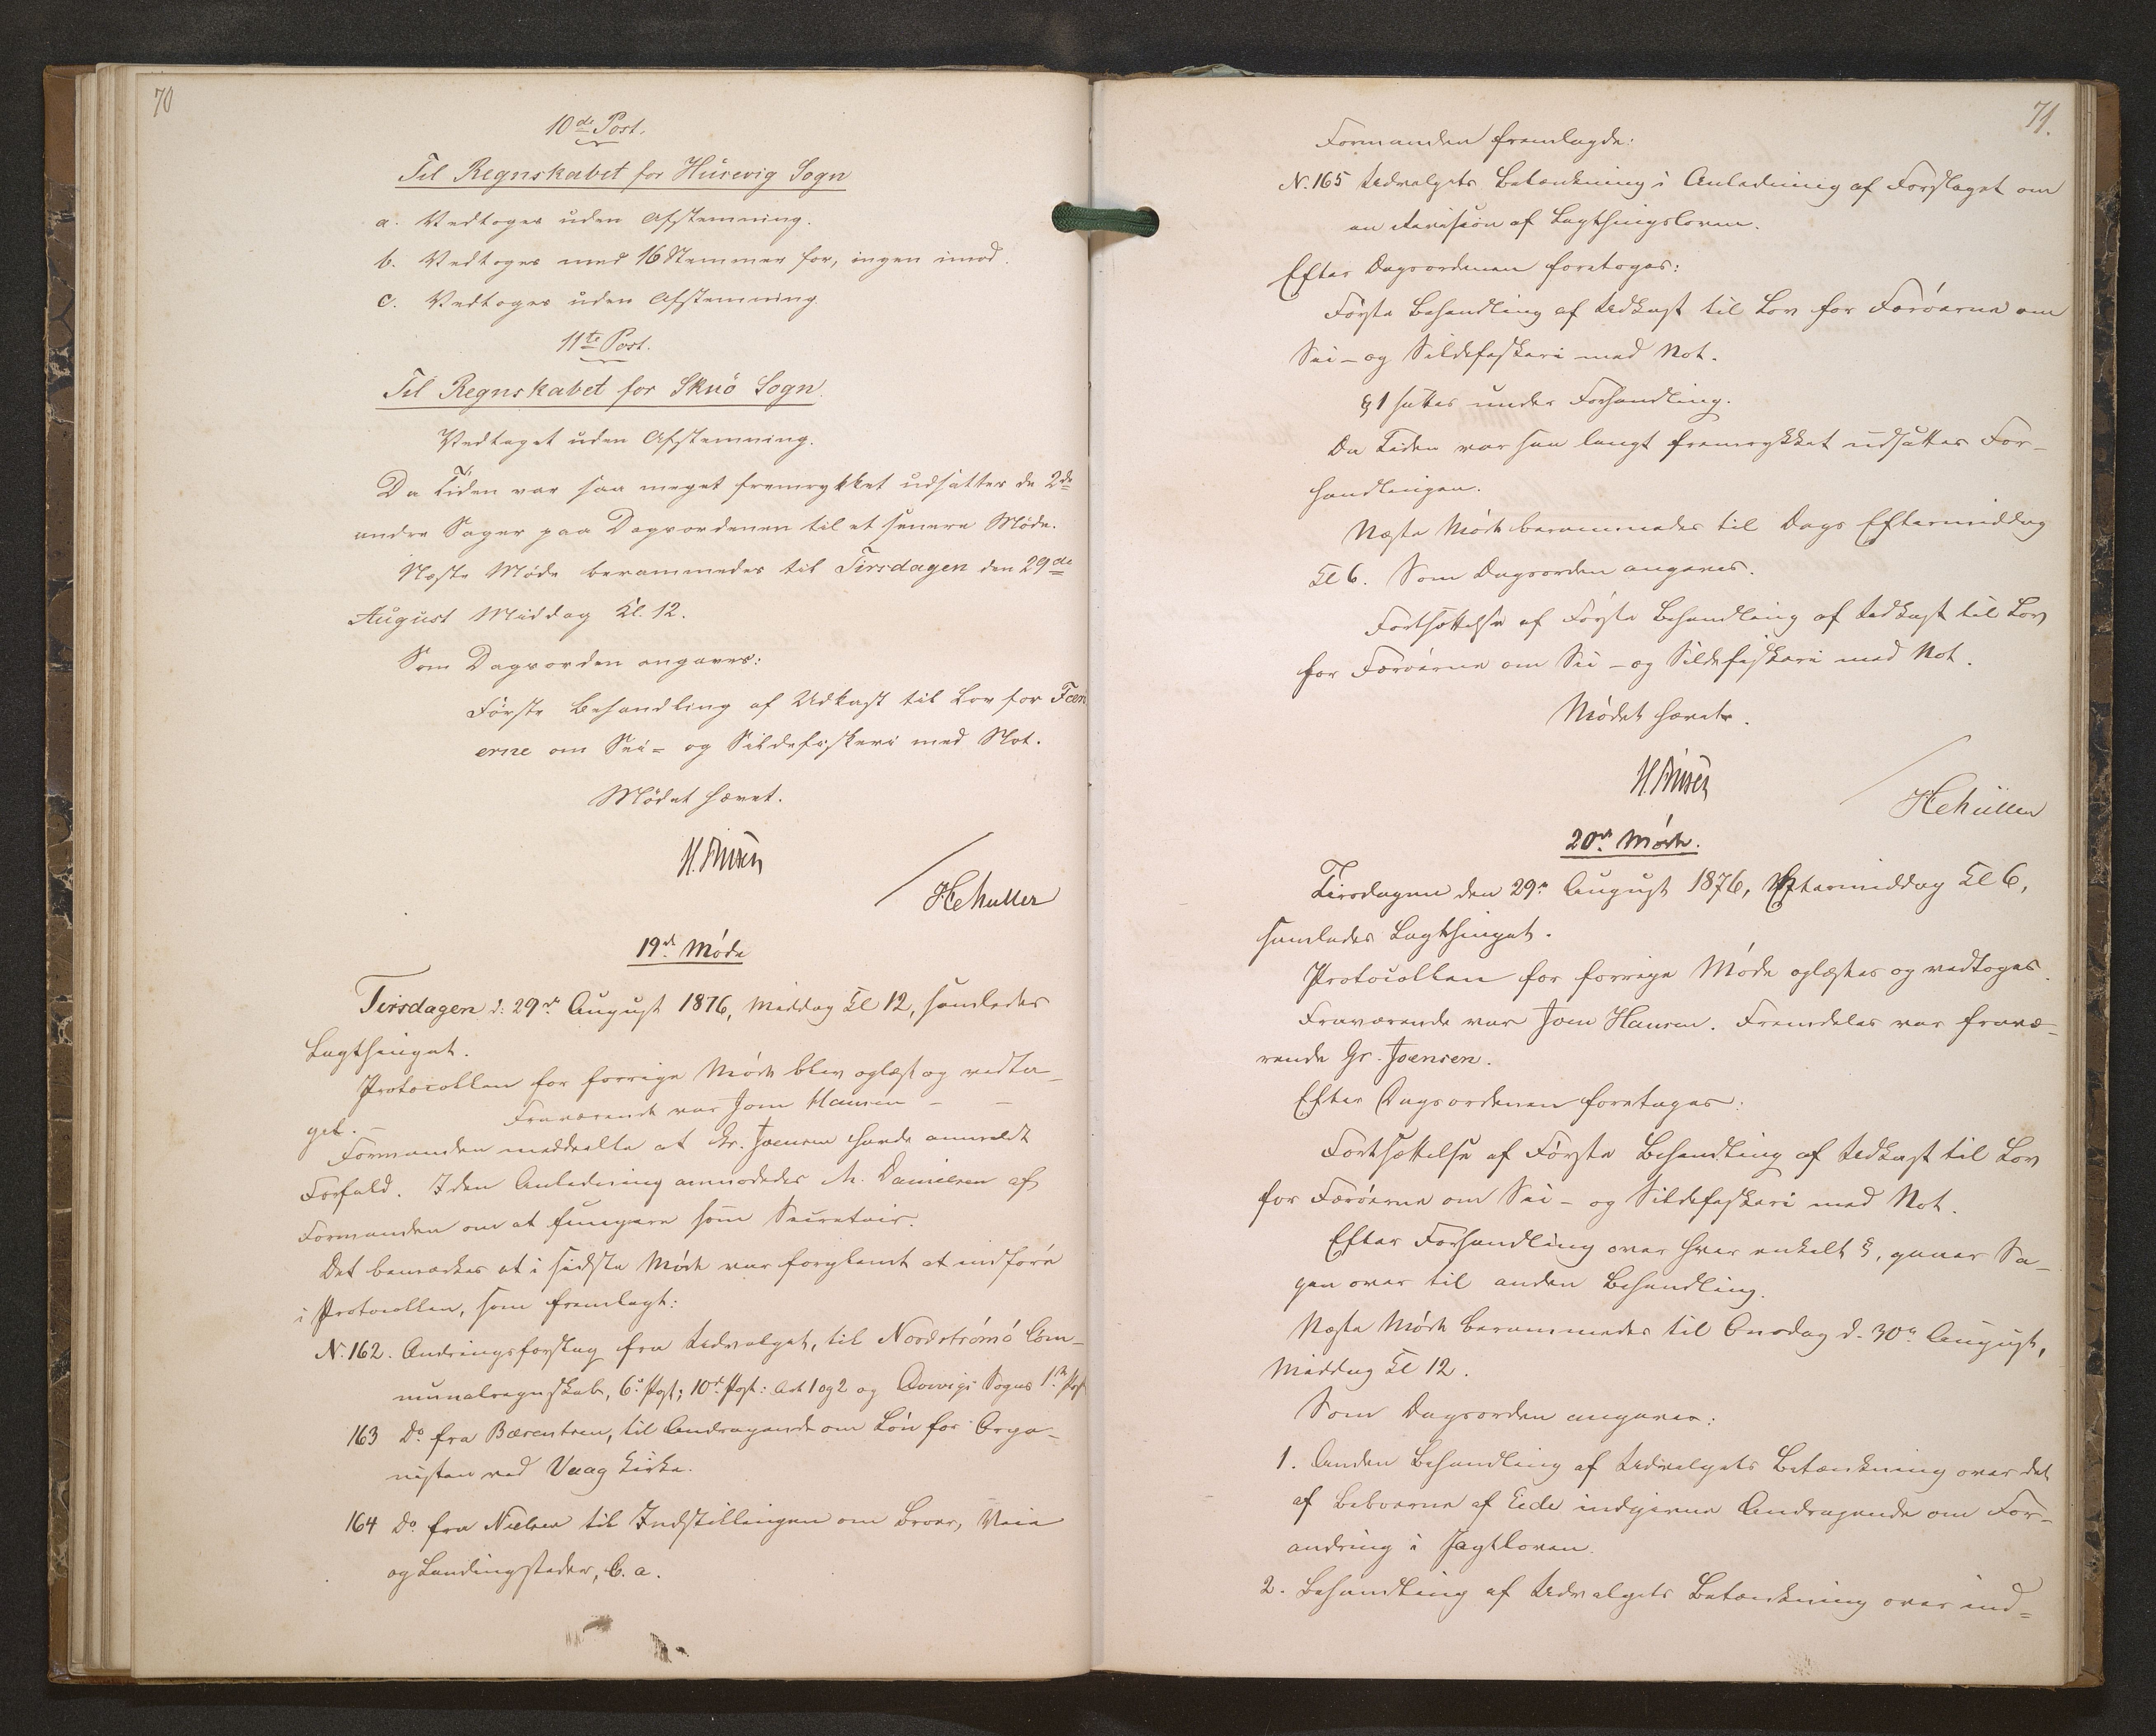 70
10de Post.
Til Regnskabet for Husevig Sogn
a. Vedtoges uden Afstemning.
b. Vedtoges med 16 Stemmer for, ingen imod.
c. Vedtoges uden Afstemning
11te Post.
Til Regnskabet for Skuö Sogn.
Vedtaget uden Afstemning.
Da Tiden var saa meget fremrykket udsattes de 2de
andre Sager paa Dagsordenen til et senere Möde.
Næste Möde berammedes til Tirsdagen den 29de
August Middag Kl. 12.
Som Dagsorden angaves:
Förste Behandling af Udkast til Lov for Fær
erne om Sei- og Sildefiskeri med Not.
Mödet hævet.
H. Finsen
HCMüller
19de Möde
Tirsdagen d: 29de August 1876, Middag Kl 12, samledes
Lagthinget.
Protocollen for forrige Möde blev oplæst og vedta-
get. - Fraværende var Joen Hansen - -
Formanden meddeelte at Gr. Joensen havde anmeldt
Forfald. I den Anledning anmodedes M. Danielsen af
Formanden om at fungere som Secretair.
Det bemærkes at i sidste Möde var forglemt at indföre
i Protocollen, som fremlagt:
N. 162. Ændringsforslag fra Udvalget, til Nordströmö Com-
munalregnskab, 6te Post; 10de Post: Art 1 og 2 og Qvivigs Sogns 1ste Post
163 Do. fra Bærentsen, til Andragende om Lön for Orga-
nisten ved Vaag Kirke.
164 Do. fra Nielsen til Indstillingen om Broer, Veie
og Landingssteder, C. a.
71.
Formanden fremlagde:
N. 165 Udvalgets Betænkning i Anledning af Forslaget om
en Revision af Lagthingsloven.
Efter Dagsordenen foretoges:
Förste Behandling af Udkast til Lov for Færöerne om
Sei- og Sildefiskeri med Not.
§ 1 sattes under Forhandling.
Da Tiden var saa langt fremrykket udsattes For-
handlingen.
Næste Möde berammedes til Dags Eftermiddag
Kl 6. Som Dagsorden angaves.
Fortsættelse af Förste Behandling af Udkast til Lov
for Færöerne om Sei- og Sildefiskeri med Not.
Mödet hævet.
H. Finsen
HCMüller
20de Möde.
Tirsdagen den 29de August 1876, Eftermiddag Kl 6,
samledes Lagthinget.
Protocollen for forrige Möde oplæstes og vedtoges.
Fraværende var Joen Hansen. Fremdeles var fravæ-
rende Gr. Joensen.
Efter Dagsordenen foretages:
Fortsættelse af Förste Behandling af Udkast til Lov
for Færöerne om Sei- og Sildefiskeri med Not.
Efter Forhandling over hver enkelt §, gaaer Sa-
gen over til anden Behandling.
Næste Möde berammedes til Onsdag d. 30te August,
Middag Kl 12.
Som Dagsorden angaves:
1. Anden Behandling af Udvalgets Betænkning over det
af Beboerne af Eide indgivne Andragende om For-
andring i Jagtloven.
2. Behandling af Udvalgets Betænkning over ind-